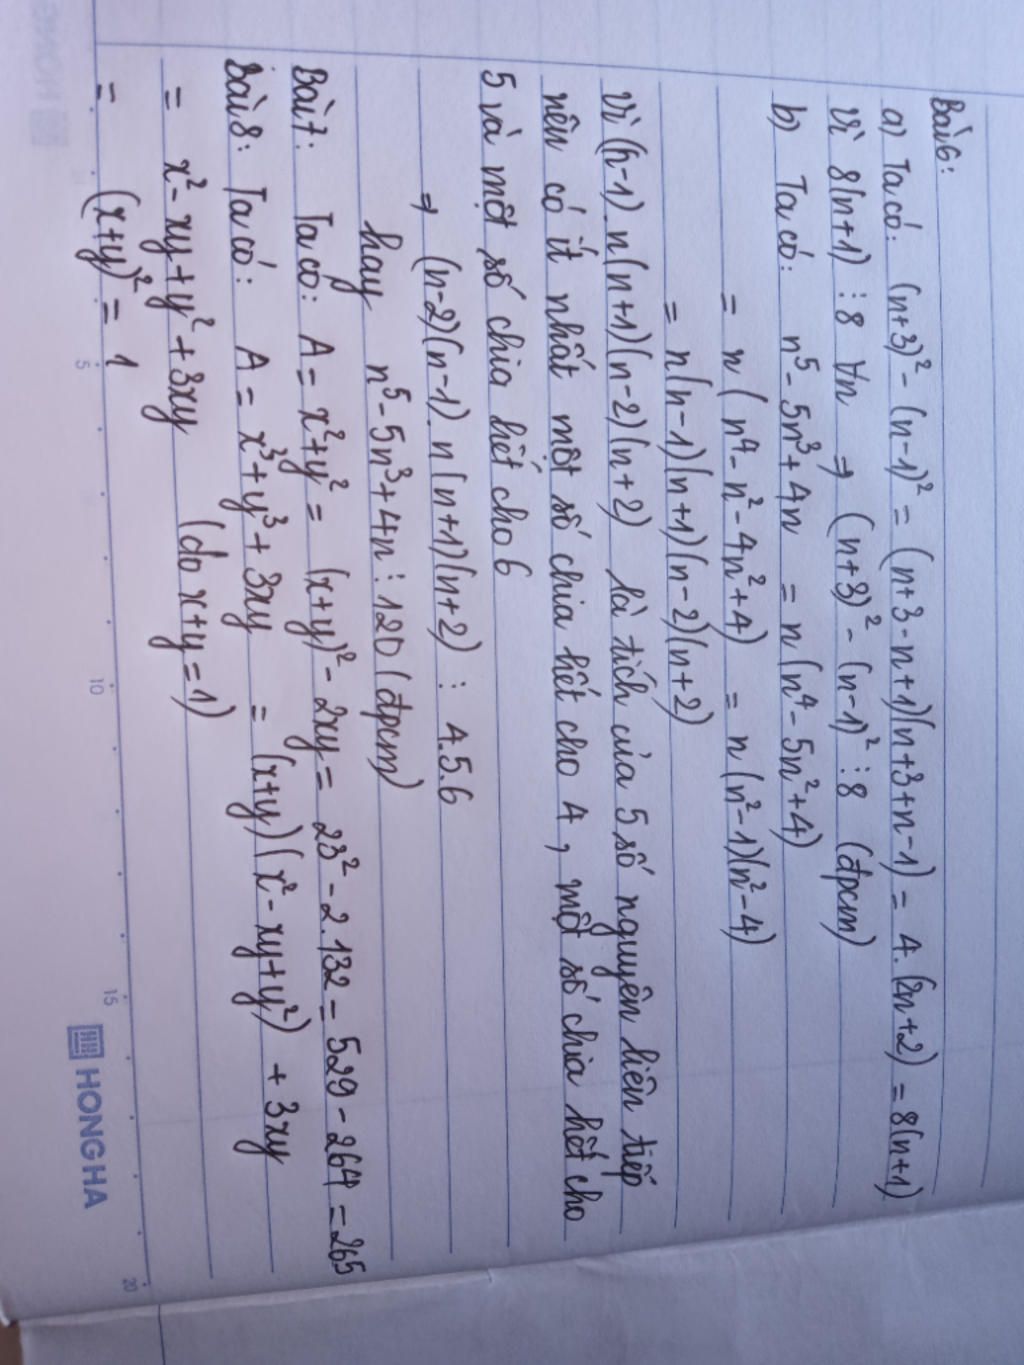 Bài 6:
a) Ta có: (n+3)² - (n-1)² = (n+3-n+1)(n+3+n-1) = 4.(2n+2) = 8(n+1)
Vì 8(n+1) ⋮ 8 ∀n ⇒ (n+3)² - (n-1)² ⋮ 8 (đpcm)
b) Ta có: n⁵ - 5n³ + 4n = n(n⁴ - 5n² + 4)
= n(n⁴ - n² - 4n² + 4) = n(n² - 1)(n² - 4)
= n(n-1)(n+1)(n-2)(n+2)
Vì (n-1).n(n+1)(n-2)(n+2) là tích của 5 số nguyên liên tiếp
nên có ít nhất một số chia hết cho 4, một số chia hết cho
5 và một số chia hết cho 6
⇒ (n-2)(n-1).n(n+1)(n+2) ⋮ 4.5.6
hay n⁵ - 5n³ + 4n ⋮ 120 (đpcm)
Bài 7: Ta có: A = x² + y² = (x+y)² - 2xy = 23² - 2.132 = 529 - 264 = 265
Bài 8: Ta có: A = x³ + y³ + 3xy = (x+y)(x² - xy + y²) + 3xy
= x² - xy + y² + 3xy (do x+y = 1)
= (x+y)² = 1
5 10 15 20
HONG HA